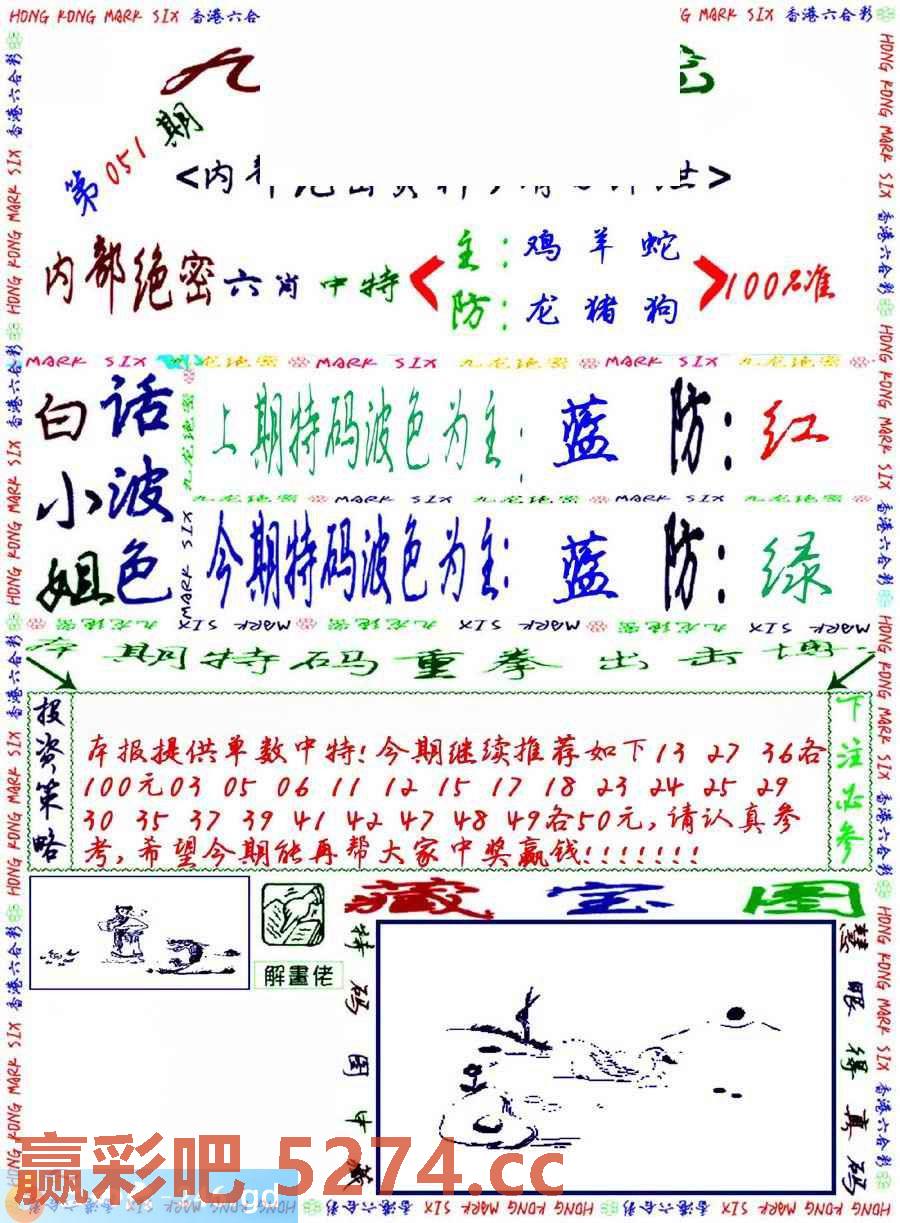 HONG KONG MARK SIX 香港六合彩
MARK SIX 香港六合彩
九
第051期
<内
内部绝密六肖中特
主:鸡羊蛇
防:龙猪狗
100%准
MARK SIX 九龙绝密 MARK SIX 九龙绝密 MARK SIX 九龙绝密
白话
小波
姐色
上期特码波色为主:蓝 防:红
九龙绝密 MARK SIX 九龙绝密 MARK SIX 九龙绝密
今期特码波色为主:蓝 防:绿
九龙绝密 MARK SIX 九龙绝密 MARK SIX 九龙绝密 MARK SIX
本期特码重拳出击
投资策略
本报提供单数中特!今期继续推荐如下13 27 36各
100元03 05 06 11 12 15 17 18 23 24 25 29
30 35 37 39 41 42 47 48 49各50元,请认真参
考,希望今期能再帮大家中奖赢钱!!!!!!!
下注必参
藏宝图
解畫佬
特码图中藏
慧眼得真码
赢彩吧 5274.cc
HONG KONG MARK SIX 香港六合彩